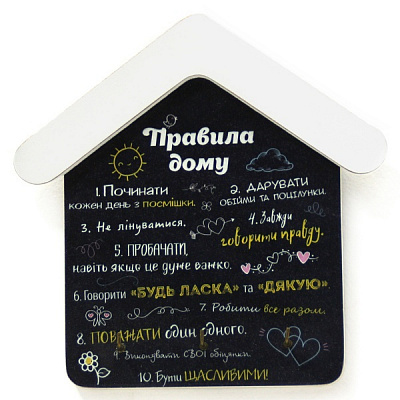 Правила
дому
1. Починати
кожен день з посмішки.
2. ДАРУВАТИ
ОБІЙМИ ТА ПОЦІЛУНКИ.
3. Не лінуватися.
4. Завжди
говорити правду.
5. ПРОБАЧАТИ,
навіть якщо це дуже важко.
6. Говорити «БУДЬ ЛАСКА» та «ДЯКУЮ»
7. Робити все разом.
8. ПОВАЖАТИ один одного.
9. Виконувати СВОЇ обіцянки.
10. Бути ЩАСЛИВИМИ!